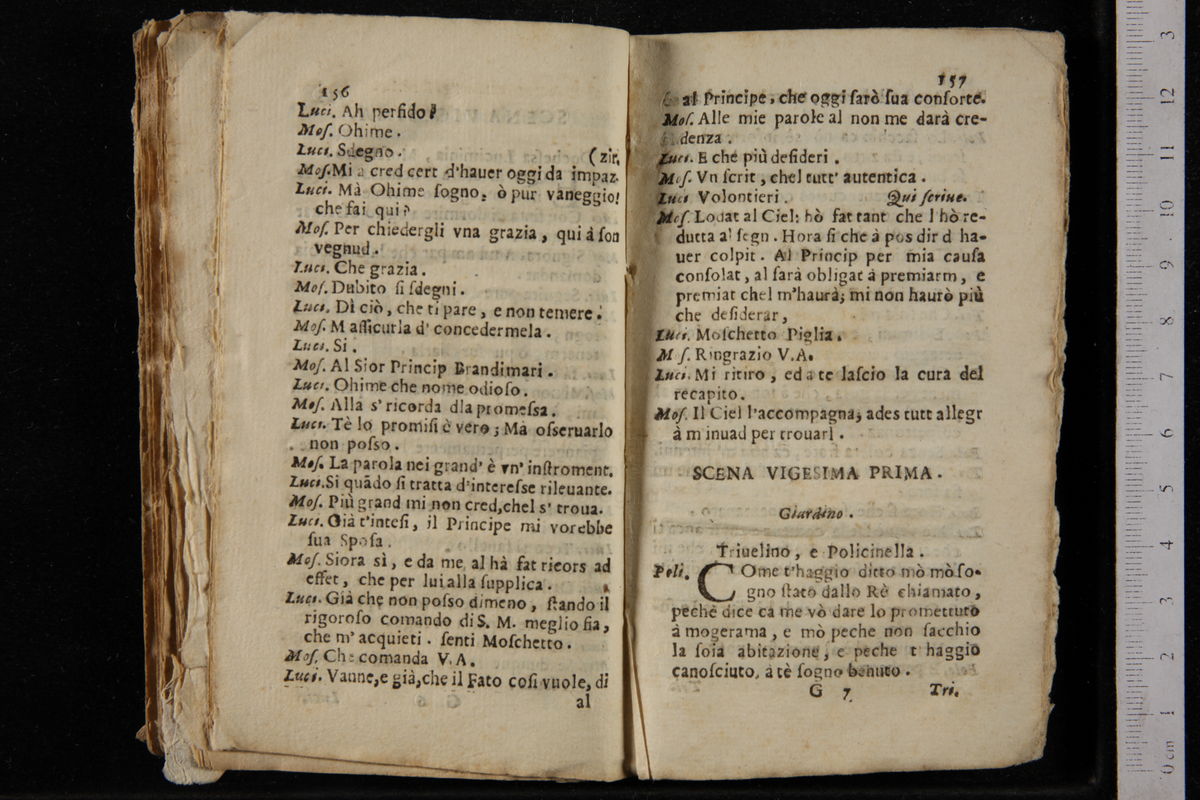 156
Luci. Ah perfido!
Moſ. Ohime.
Luci. Sdegno. (zir,
Moſ. Mi a cred cert d'hauer oggi da impaz
Luci. Mà Ohime ſogno, ò pur vaneggio!
che fai qui?
Moſ. Per chiedergli vna grazia, qui à ſon
vegnud.
Luci. Che grazia.
Moſ. Dubito ſi ſdegni.
Luci. Dì ciò, che ti pare, e non temere.
Moſ. M aſſicurla d' concedermela.
Luci. Si.
Moſ. Al Sior Princip Brandimari.
Luci. Ohime che nome odioſo.
Moſ. Alla s' ricorda dla promeſsa.
Luci. Tè lo promiſi è vero; Mà oſseruarlo
non poſso.
Moſ. La parola nei grand' è vn' inſtroment.
Luci. Si quãdo ſi tratta d'intereſse rileuante.
Moſ. Più grand mi non cred, chel s' troua.
Luci. Già t'inteſi, il Principe mi vorebbe
ſua Spoſa.
Moſ. Siora sì, e da me al hà fat ricors ad
effet, che per lui alla ſupplica.
Luci. Già che non poſso dimeno, ſtando il
rigoroſo comando di S. M. meglio ſia,
che m' acquieti. ſenti Moſchetto.
Moſ. Che comanda V. A.
Luci. Vanne, e già, che il Fato coſi vuole, dì
al
157
al Principe, che oggi ſarò ſua conſorte.
Moſ. Alle mie parole al non me darà cre-
denza.
Luci. E che più deſideri.
Moſ. Vn ſcrit, chel tutt' autentica.
Luci Volontieri. Qui ſcriue.
Moſ. Lodat al Ciel; hò fat tant che l hò re-
dutta al ſegn. Hora ſi che à pos dir d ha-
uer colpit. Al Princip per mia cauſa
conſolat, al ſarà obligat à premiarm, e
premiat chel m'haurà; mi non haurò più
che deſiderar,
Luci. Moſchetto Piglia.
M ſ. Ringrazio V. A.
Luci. Mi ritiro, ed a te laſcio la cura del
recapito.
Moſ. Il Ciel l'accompagna; ades tutt allegr
à m inuad per trouarl.
SCENA VIGESIMA PRIMA.
Giardino.
Triuelino, e Policinella.
Poli. COme t'haggio ditto mò mò ſo-
gno ſtato dallo Rè chiamato,
pechè dice ca me vò dare lo promettuto
à mogerama, e mò peche non ſacchio
la ſoia abitazione, e peche t haggio
canoſciuto, a tè ſogno benuto.
G 7 Tri.